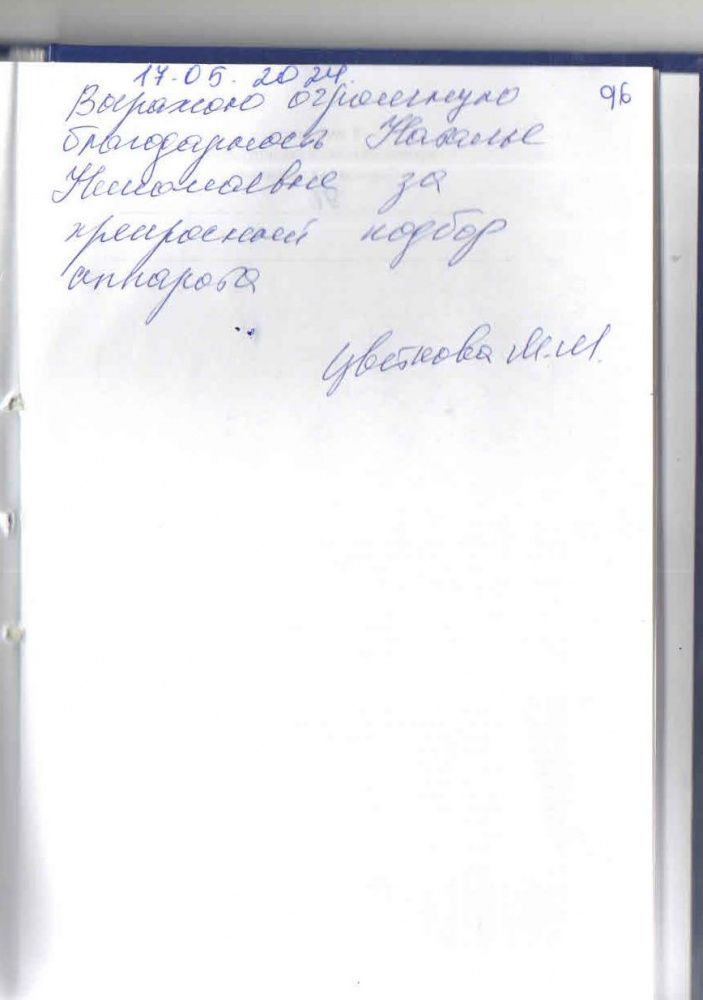 17.05.2024.
96
Выражаю огромную
благодарность Наталье
Николаевне за
прекрасный подбор
аппарата
Цветкова М.М.